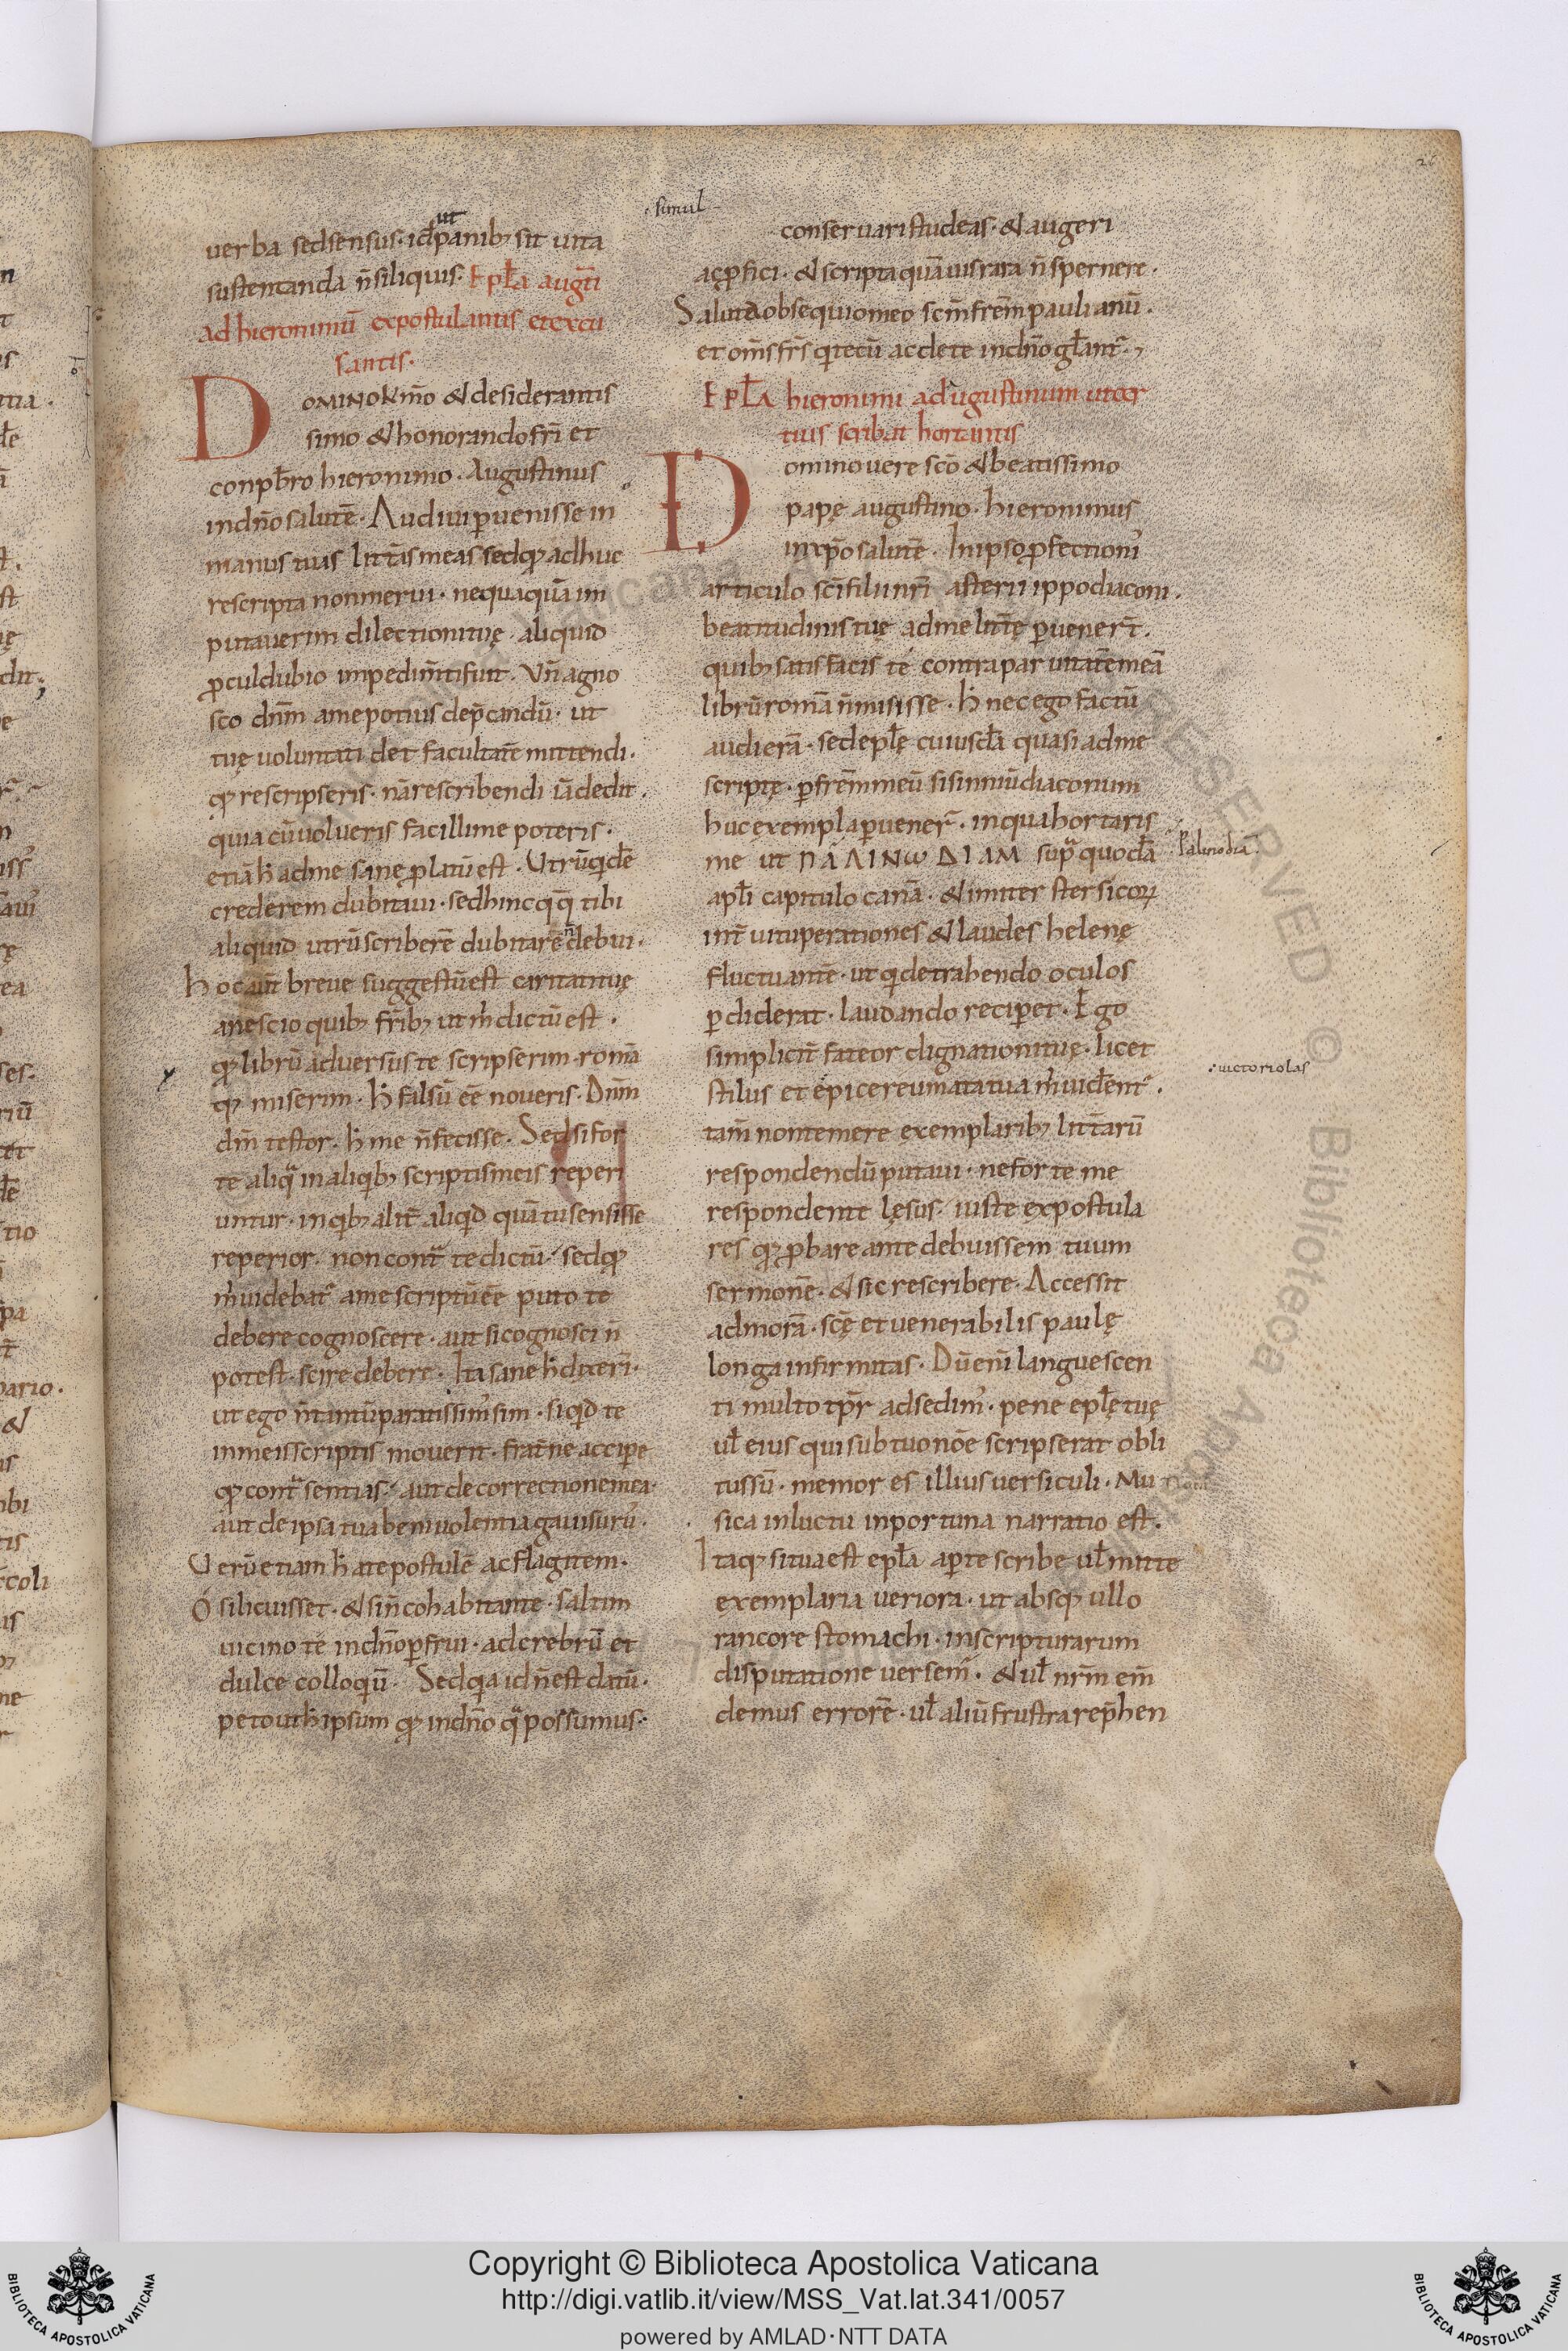 26
ut
uerba sed sensus · id÷ panib; sit uita
sustentanda n̄ siliquis · Epl̄a augt̄i
ad hieronimū expostulantis et excu
santis ·
Domino kmō & desiderantis
simo & honorando fr̄i et
conpb̄ro hieronimo · Augustinus
in dn̄o salutē · Audiui puenisse in
manus tuas litt̄as meas sed qđ adhuc
rescripta non merui · nequaquā im
putauerim dilectioni tuę · aliquid
pculdubio impedim̄ti fuit · Vn̄ agno
sco dn̄m a me potius dep̄candū · ut
tuę uoluntati det facultatē mittendi ·
qđ rescripseris · nā rescribendi iā dedit ·
quia cū uolueris facillime poteris ·
etiā h̄ ad me sane platū est · Utrū qidē
crederem dubitaui · sed hinc qq̄ tibi
aliquid utrū scriberē dubitare n̄ debui ·
Hoc aūt breue suggestū est caritati tuę
a nescio quib; fr̄ib; ut m̄ dictū est ·
qđ librū aduersus te scripserim · romā
q; miserim · h̄ falsū eē noueris · Dn̄m
dm̄ testor · h̄ me n̄ fecisse · Sed si for
te aliq̄ in aliqib; scriptis meis reperi
untur · in qib; alit̄ aliqid quā tu sensisse
reperior · non cont̄ te dictū · sed qđ
m̄ uidebat̄ a me scriptū eē puto te
debere cognoscere · aut si cognosci n̄
potest · scire debere · Ita sane h̄ dixeri ·
ut ego n̄ tantū paratissim' sim · siqid te
in meis scriptis mouerit · frat̄ne accipe
qđ cont̄ sentias · aut de correctione mea ·
aut de ipsa tua beniuolentia gauisur' ·
Verū etiam h̄ a te postulē ac flagitem ·
O si licuisset · & si n̄ cohabitante · saltim
uicino te in dn̄o pfrui · ad crebrū et
dulce colloqiū · Sed qia id n̄ est datū ·
peto ut h̄ ipsum qđ in dn̄o q̄ possumus ·
· simul
conseruari studeas · & augeri
ac pfici · & scripta quāuis rara n̄ spernere ·
Saluta obsequio meo scm̄ frēm paulianū ·
et om̄s fr̄s q tecū ac de te in dn̄o gl̄ant̄ ·
Epl̄a hieronimi ad augustinum ut cer
tius scribat hortantis
Domino uere scō & beatissimo
papę augustino · hieronimus
in xp̄o salutē · In ipso pfectionis
articulo scī filii nr̄i asterii ippodiaconi ·
beatitudinis tuę ad me litt̄ę puener̄t ·
quib; satisfacis te contra paruitatē meā
librū romā n̄ misisse · h̄ nec ego factū
audierā · sed epl̄ę cuiusdā quasi ad me
scriptę · p frēm meū sisinniū diaconum
huc exempla puener̄ · in qua hortaris
me ut ΠΑΛΙΝωΔΙΑΜ sup̄ quodā
apl̄i capitulo canā · & imiter stersicorū
int̄ uituperationes & laudes helenę
fluctuantē · ut q detrahendo oculos
pdiderat · laudando recipet · Ego
simplicit̄ fateor dignationi tuę · licet
stilus et epicereumata tua m̄ uident̄ ·
tam̄ non temere exemplarib; litt̄arū
respondendū putaui · ne forte me
respondente lęsus · iuste expostula
res qđ pbare ante debuissem tuum
sermonē · & sic rescribere · Accessit
ad morā · scę et uenerabilis paulę
longa infirmitas · Dū eni languescen
ti multo tp̄r adsedim' · pene epl̄ę tuę
ul̄ eius qui sub tuo noē scripserat obli
ti sum̄ · memor es illius uersiculi · Mu
sica in luctu inportuna narratio est ·
Itaq; si tua est epl̄a apte scribe ul̄ mitte
exemplaria ueriora · ut absq; ullo
rancore stomachi · in scripturarum
disputatione uersem̄ · & ul̄ nr̄m em̄
demus errorē · ul̄ aliū frustra rep̄hen
Palinodiā
· uictoriolas
Copyright © Biblioteca Apostolica Vaticana
http://digi.vatlib.it/view/MSS_Vat.lat.341/0057
powered by AMLAD·NTT DATA
BIBLIOTECA APOSTOLICA VATICANA
BIBLIOTECA APOSTOLICA VATICANA